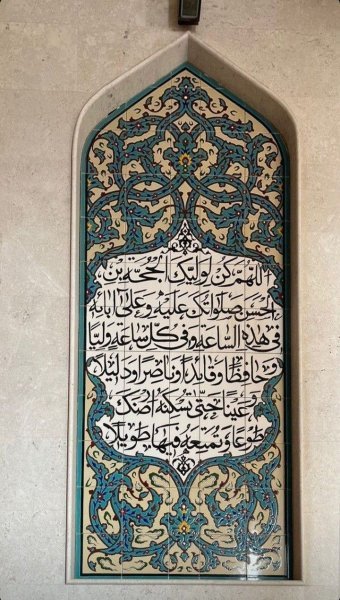 اللّهُمَّ كُنْ لِوَلِيِّكَ الْحُجَّةِ بْنِ
الْحَسَنِ صَلَواتُكَ عَلَيْهِ وَعَلى آبائِهِ
في هذِهِ السّاعَةِ وَفي كُلِّ ساعَةٍ وَلِيّاً
وَحافِظاً وَقائِداً وَناصِراً وَدَليلاً
وَعَيْناً حَتّى تُسْكِنَهُ أَرْضَكَ
طَوْعاً وَتُمَتِّعَهُ فيها طَويلاً